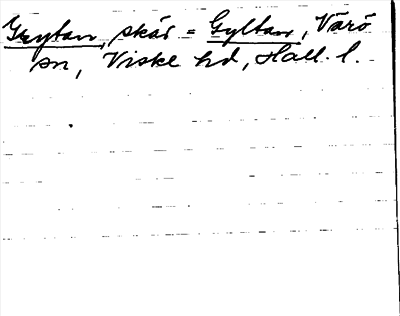 Grytan, skär = Gyltan, Värö
sn, Viske hd, Hall. l.